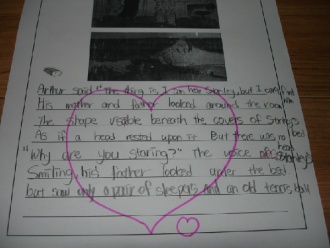 Arthur said "The thing is I can hear Stanley, but I can't find him
His mother and father looked around the room
The shape visible beneath the covers of Stanley's bed
As if a head rested upon it. But there was no head
"Why are you staring?" The voice was Stanley's
Smiling, his father looked under the bed.
but saw only a pair of sleepers and an old tennis ball